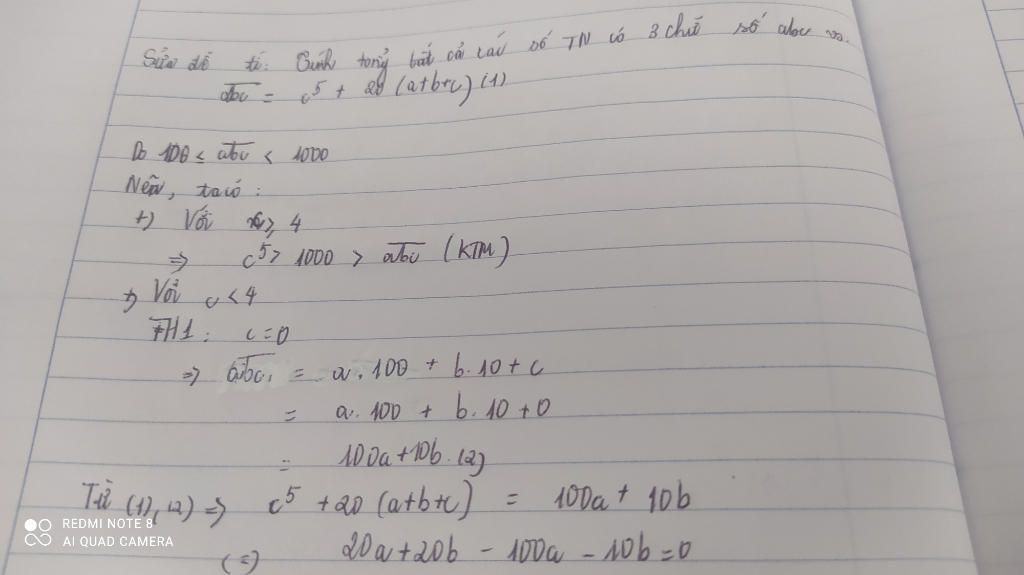 Sửa đề tí: Tính tổng tất cả các số TN có 3 chữ số abc
abc = c⁵ + 20 (a+b+c) (1)
Do 100 ≤ abc < 1000
Nên, ta có:
+) Với c ≥ 4
⇒ c⁵ > 1000 > abc (KTM)
+) Với c < 4
TH1: c=0
⇒ abc = a.100 + b.10 + c
= a.100 + b.10 + 0
= 100a+10b (2)
Từ (1), (2) ⇒ c⁵ + 20 (a+b+c) = 100a + 10b
(=) 20a+20b - 100a - 10b = 0
REDMI NOTE 8
AI QUAD CAMERA